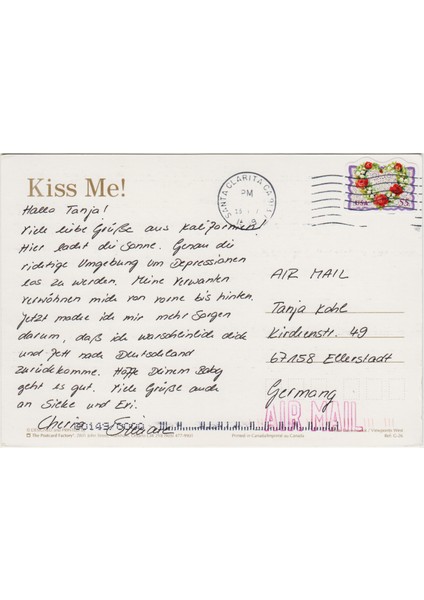 Kiss Me!
Hallo Tanja!
Viele liebe Grüße aus Kalifornien!
Hier lacht die Sonne. Genau die
richtige Umgebung um Depressionen
los zu werden. Meine Verwanten
verwöhnen mich von vorne bis hinten.
Jetzt mache ich mir mehr Sorgen
darum, daß ich warscheinlich dick
und fett nach Deutschland
zurückomme. Hoffe Deinem Baby
geht es gut. Viele Grüße auch
an Silke und Eri.
SANTA CLARITA CA
PM
USA 55
AIR MAIL
Tanja Kohl
Kirchenstr. 49
67158 Ellerstadt
Germany
AIR MAIL
The Postcard Factory
Printed in Canada/Imprimé au Canada